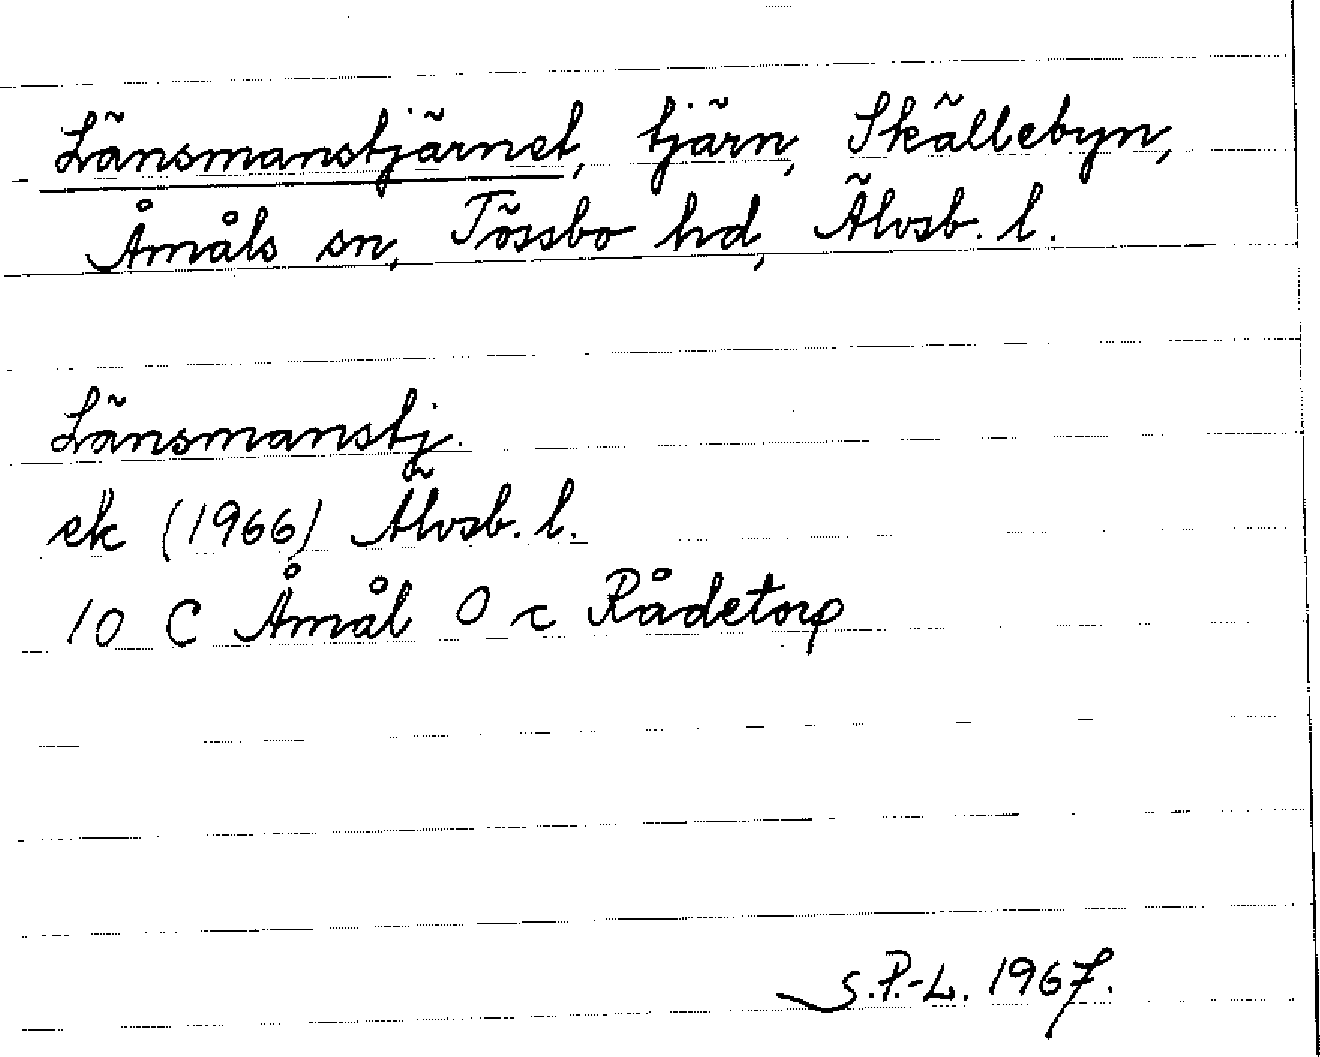 Länsmanstjärnet, tjärn, Skällebyn,
Åmåls sn, Tössbo hd, Älvsb. l.
Länsmanstj.
ek (1966) Älvsb. l.
10 C Åmål O c Rådetorp
S.P.-L. 1967.